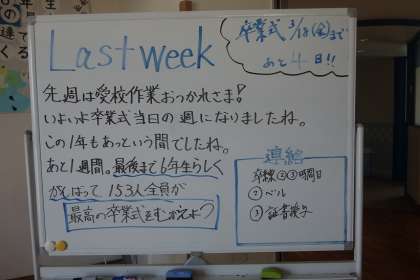 Last week
卒業式 3/18(金)まで
あと4日!!
先週は受校作業おつかれさま!
いよいよ卒業式当日の週になりましたね。
この1年もあっという間でしたね。
あと1週間。最後まで6年生らしく
がんばって 153人全員が
最高の卒業式をむかえよう
連絡
卒練②③時間目
② ベル
③ 証書授与